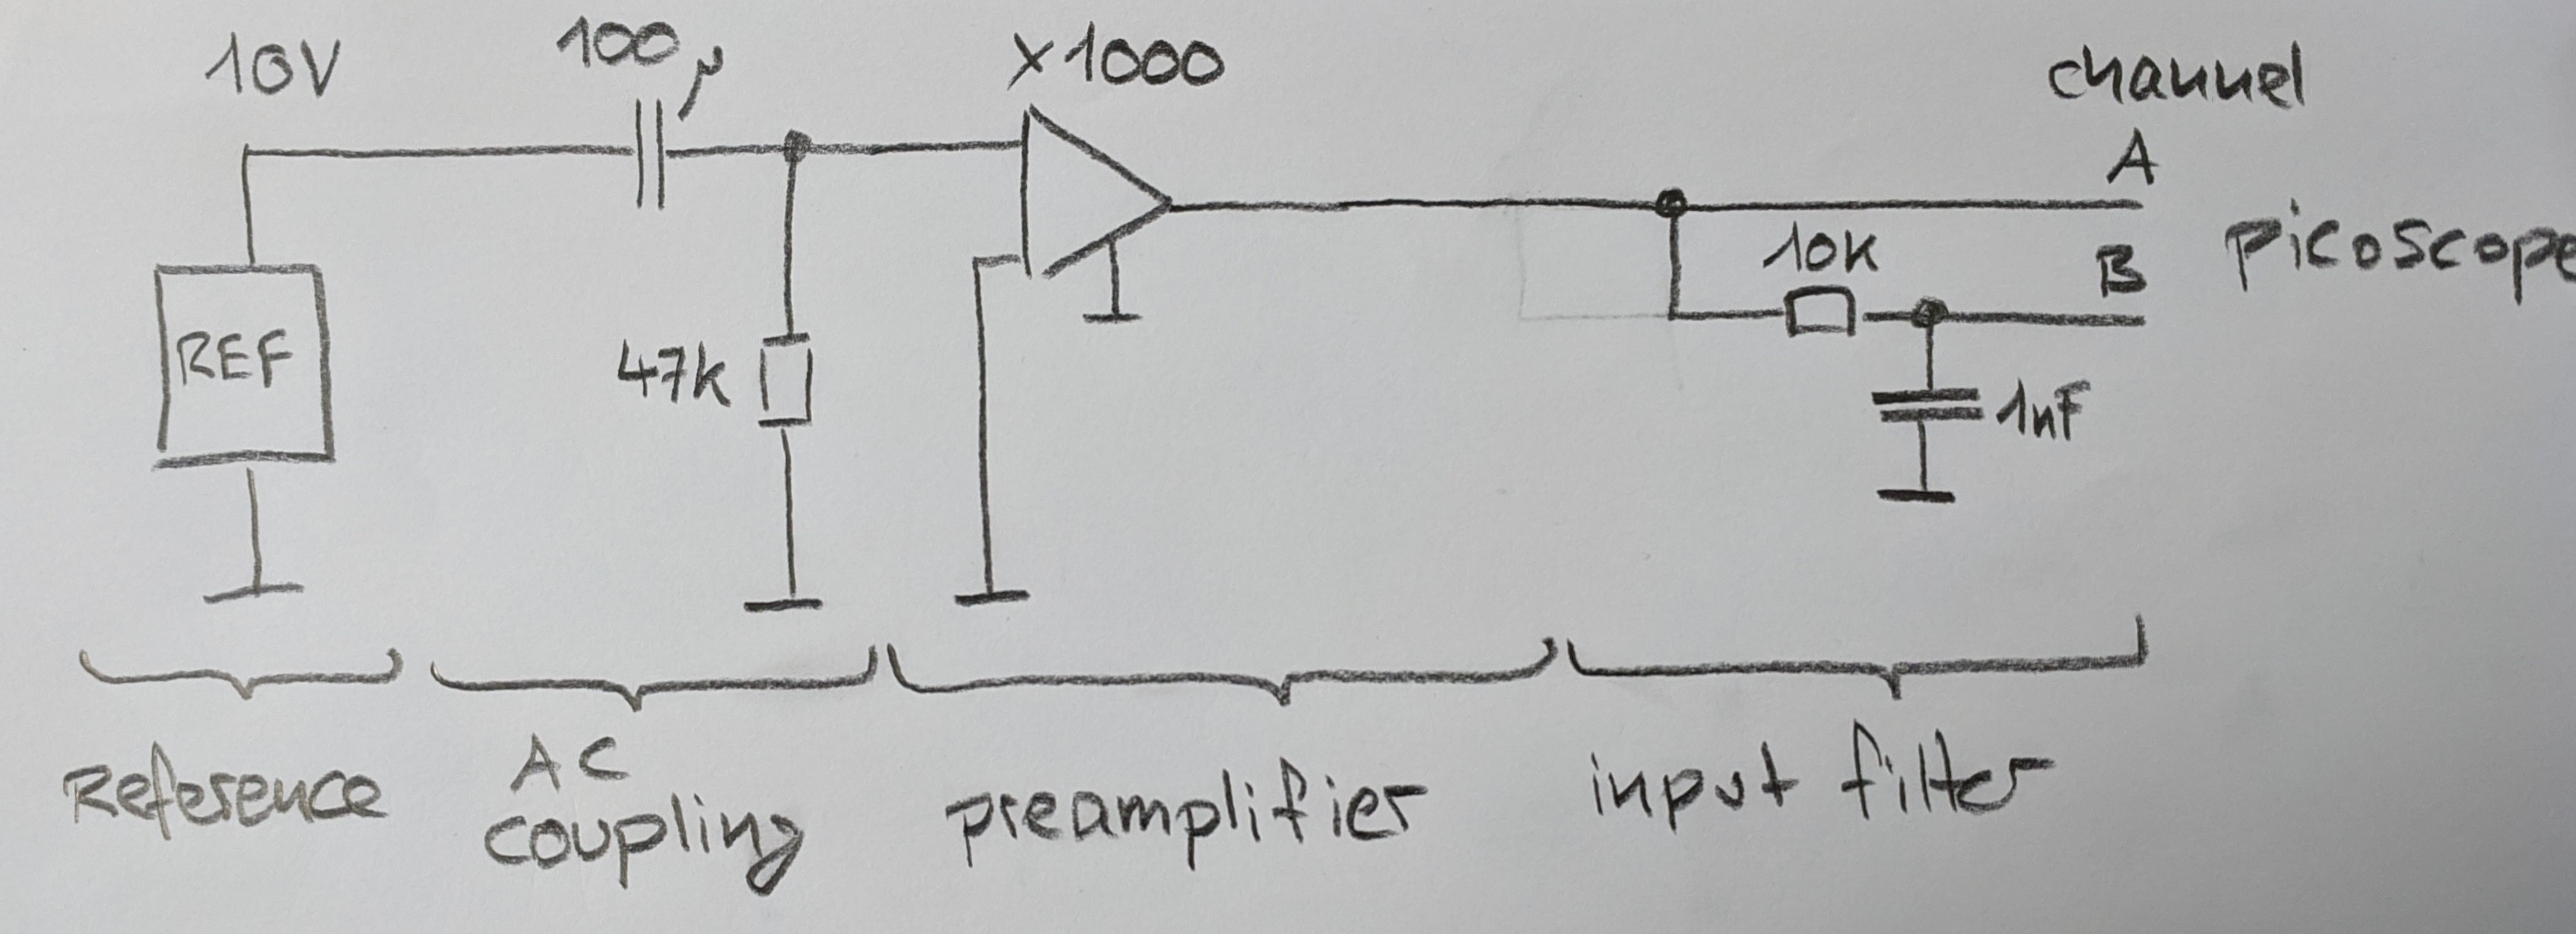 10V
100µ
x1000
channel
A
10k
B
picoscope
REF
47k
1nF
Reference
AC
coupling
preamplifier
input filter